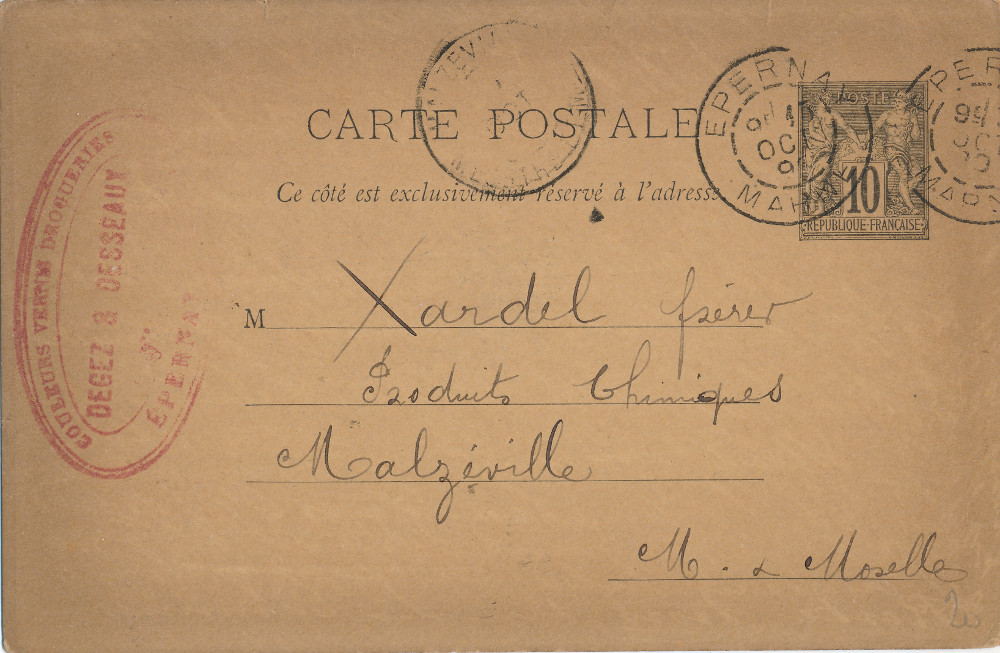 CARTE POSTALE
Ce côté est exclusivement réservé à l'adresse
EPERNAY
OCT
MARNE
EPERNAY
OCT
MARNE
POSTE
10
RÉPUBLIQUE FRANÇAISE
COULEURS VERNIS DROGUERIES
DEGEZ & DESSEAUX
EPERNAY
M Xardel frères
Produits Chimiques
Malzéville
M. & Moselle